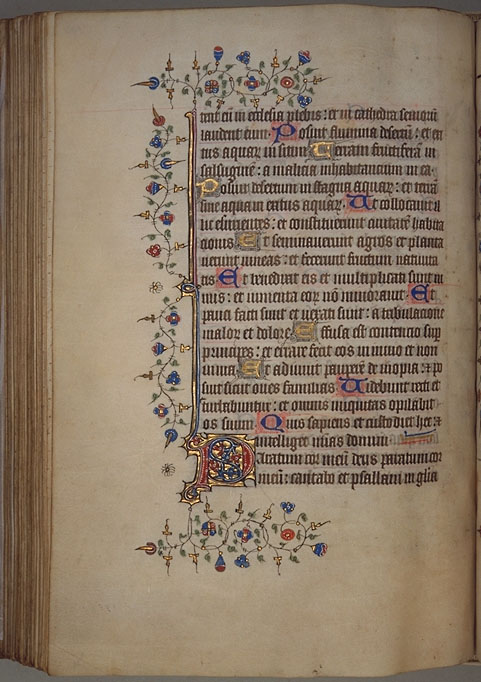 tent eu in ecclesia plebis: et in cathedra senioru
laudent eum. Posuit flumina desertu: et exi
tus aquar in sitim. Terram fructiferā in
salsuginē: a malicia inhabitantium in ea.
Posuit desertum in stagna aquar: et terā
sine aqua in exitus aquar. Et collocavit il
lic esurientes: et constituerunt civitatē habita
tionis. Et seminaverunt agros et planta
verunt vineas: et fecerunt fructum nativita
tis. Et benedixit eis et multiplicati sunt ni
mis: et iumenta eor nō minoravit. Et
pauci facti sunt et vexati sunt: a tribulatione
malor et dolore. Effusa est contencio sup
principes: et errare fecit eos in invio et non
in via. Et adiuvit pauperē de inopia: et po
suit sicut oves familias. Videbunt recti et
letabuntur: et omnis iniquitas opilabit
os suum. Quis sapiens et custodiet hec: et
intelliget mias domini.
Paratum cor meū deus paratum cor
meū: cantabo et psallam in glia